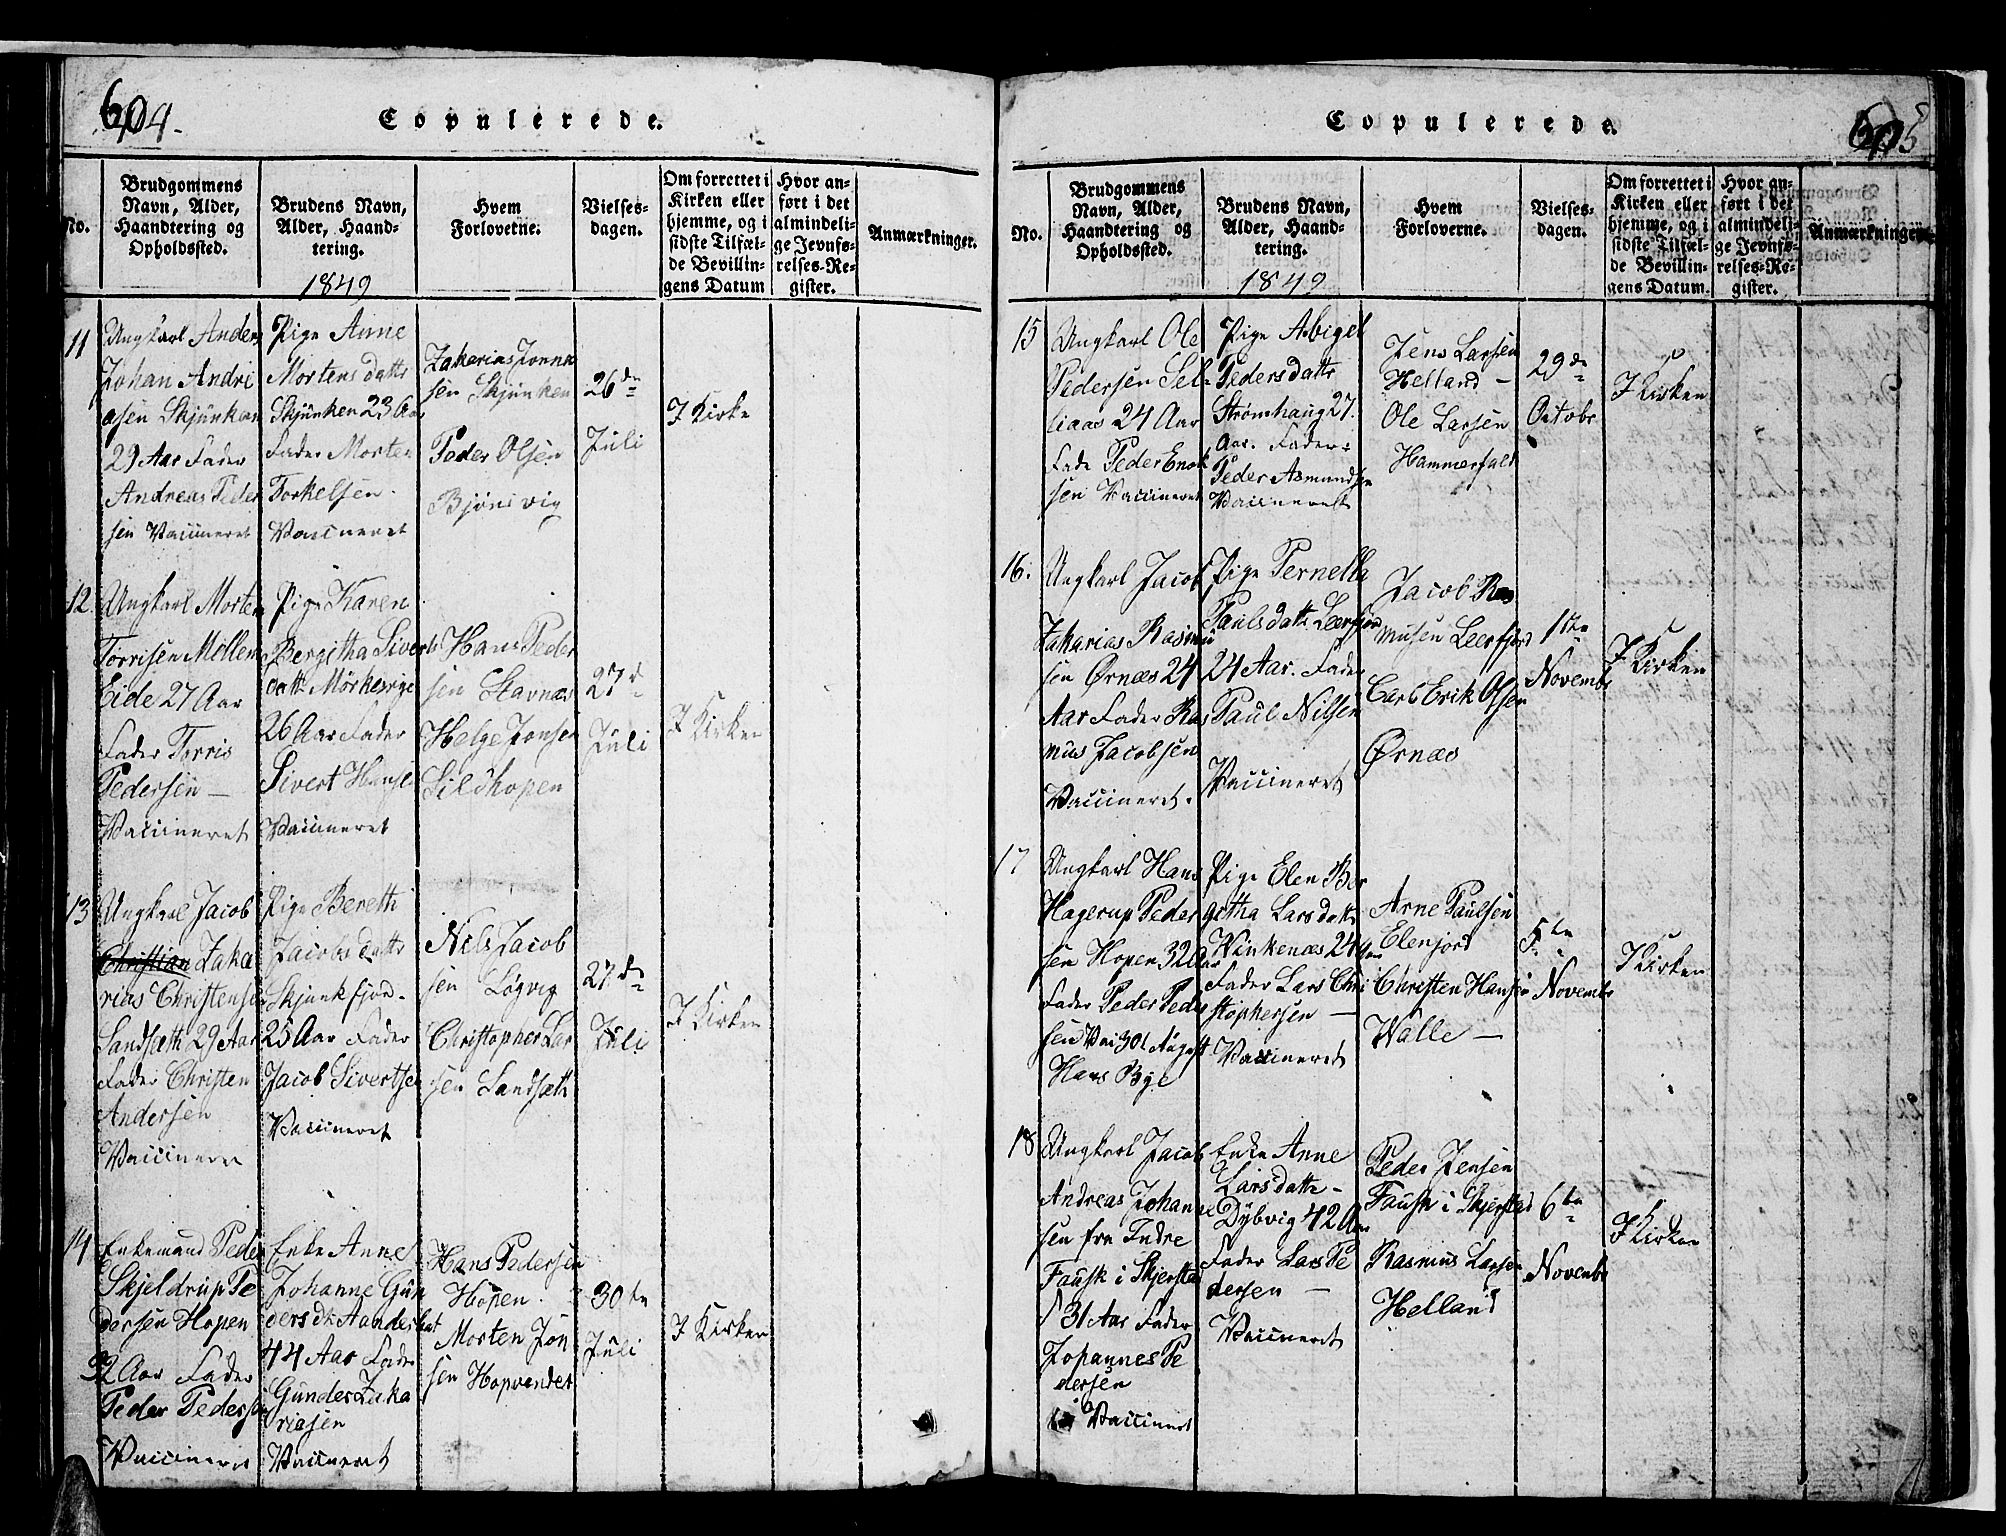 604.
Copulerede.
No.
Brudgommens
Navn, Alder,
Haandtering og
Opholdssted.
Brudens Navn,
Alder, Haand-
tering.
1849
Hvem
Forlovetne.
Vielses-
dagen.
Om forrettet i
Kirken eller
hjemme, og i
sidste Tilfæl-
de Bevillin-
gens Datum
Hvor an-
ført i det
almindeli-
ge Jevnfø-
relses-Re-
gister.
Anmærkninger.
11
Ungkarl Anders
Johan Andri
asen Skjunken
29 Aar Fader
Andreas Peder
sen Vaccineret
Pige Anne
Mortens datts
Skjunken 23 Aar
Fader Morten
Torkelsen.
Vaccineret
Zakarias Jonnæ
sen Skjunken
Peder Olsen
Bjørnsvig
26de
Juli
I Kirke
12
Ungkarl Morten
Torrisen Mellem
Eide 27 Aar
Fader Torris
Pedersen —
Vaccineret
Pige Karen
Bergitha Siverts
datt Mørkesvige
26 Aar Fader
Sivert Hansen
Vaccineret
Hans Peder
sen Stavnæs
Helge Jonsen
Sildhopen
27d
Juli
I Kirken
13
Ungkarl Jacob
Christian Zaka
rias Christensen
Sandsæth 29 Aar
Fader Christen
Andersen
Vaccinere
Pige Bereth
Jacobs datts
Skjunkfjor.
25 Aar Fader
Jacob Sivertsen
Vaccineret
Nils Jacob
sen Løgvig
Christopher Lar
sen Sandsæth
27de
Juli
I Kirken
14
Enkemand Peder
Skjeldrup Pe
dersen Hopen
32 Aar Fader
Peder Pedersen
Vaccinere
Enke Anne
Johanne Gun
ders dt Aandesbat
44 Aar Fader
Gunder Zaka
riasen
Vaccineret
Hans Pedersen
Hopen.
Morten Jon
sen Hopvandet
30te
Juli
I Kirken
605
Copulerede.
No.
Brudgommens
Navn, Alder,
Haandtering og
Opholdssted.
Brudens Navn,
Alder, Haand-
tering.
1849
Hvem
Forloverne.
Vielses-
dagen.
Om forrettet i
Kirken eller
hjemme, og i
sidste Tilfæl-
de Bevillin-
gens Datum.
Hvor an-
ført i det
almindeli-
ge Jevnfø-
relses-Re-
gister.
Anmærkninger.
15
Ungkarl Ole
Pedersen Sel-
liaas 24 Aar
Fade Peder Enok
sen Vaccineret
Pige Abigel
Pedersdatts
Strømhaug 27.
Aar. Fader
Peder Asmundsen
Vaccineret
Jens Larsen
Helland —
Ole Larsen
Hammerfald
29de
Octobr
I Kirken
16.
Ungkarl Jacob
Zakarias Rasmu
sen Ørnæs 24
Aar Fader Ras
mus Jacobsen
Vaccineret.
Pige Pernella
Pauls datt Leerfjord
24 Aar. Fader
Paul Nilsen
Vaccineret
Jacob Ras
musen Leerfjord
Carl Erik Olsen
Ørnæs
1ste
Novembr
I Kirken
17
Ungkarl Hans
Hagerup Peder
sen Hopen 32 Aar
Fader Peder Peder
sen Vac 30t August
Hans Bye
Pige Elen Ber
githa Lars datts
Vinkenæs 24 Aar
Fader Lars Chri
stophersen —
Vaccineret
Arne Paulsen
Elenjord
Christen Hansen
Walle —
5te
Novembr
I Kirken
18
Ungkarl Jacob
Andreas Johanne
sen fra Indre
Fausk i Skjersta
d 31 Aar Fader
Johannes Pe
dersen
Vaccineret
Enke Anne
Lars datts —
Dybvig 42 Aar
Fader Lars Pe
dersen —
Vaccineret
Peder Jensen
Fausk i Skjerstad
Rasmus Larsen
Helland
6te
Novembr
I Kirken